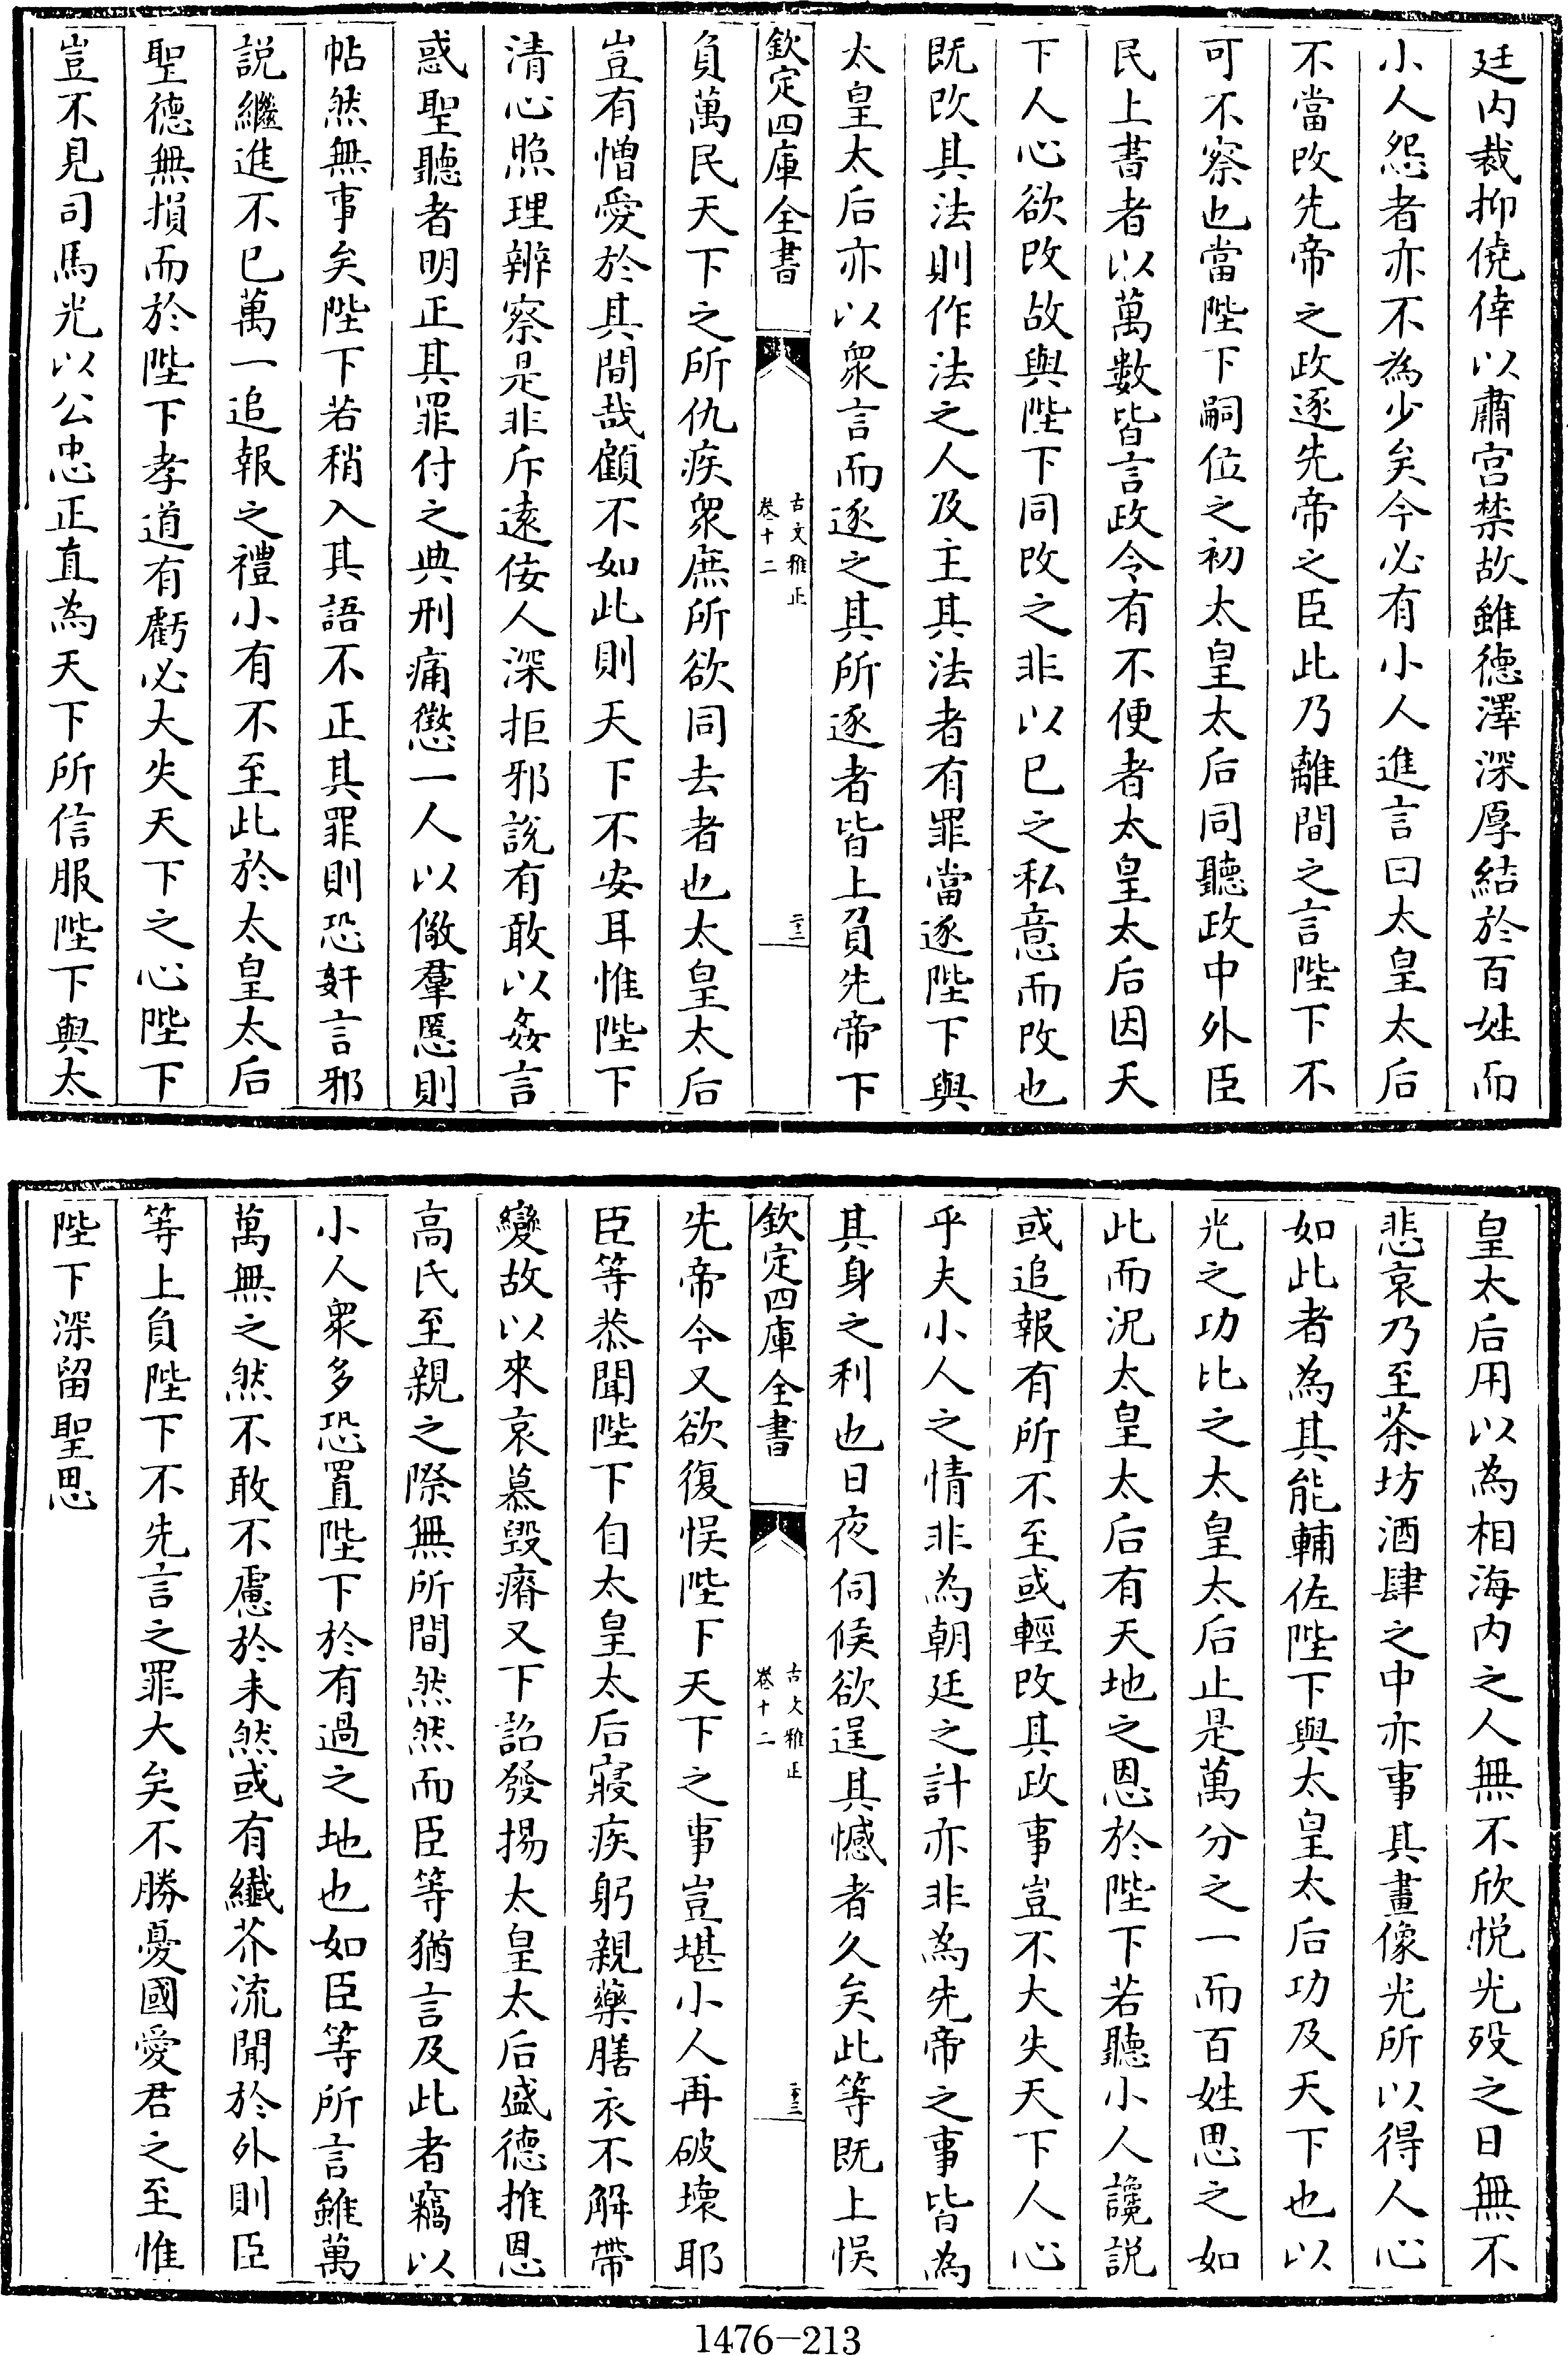 廷内裁抑僥倖以肅宮禁故雖德澤深厚結於百姓而
小人怨者亦不為少矣今必有小人進言曰太皇太后
不當改先帝之政逐先帝之臣此乃離間之言陛下不
可不察也當陛下嗣位之初太皇太后同聽政中外臣
民上書者以萬數皆言政令有不便者太皇太后因天
下人心欲改故與陛下同改之非以已之私意而改也
既改其法則作法之人及主其法者有罪當逐陛下與
太皇太后亦以眾言而逐之其所逐者皆上負先帝下
欽定四庫全書
古文雅正
卷十二
二十二
負萬民天下之所仇疾眾庶所欲同去者也太皇太后
豈有憎愛於其間哉顧不如此則天下不安耳惟陛下
清心照理辨察是非斥遠佞人深拒邪說有敢以姦言
惑聖聽者明正其罪付之典刑痛懲一人以儆羣慝則
帖然無事矣陛下若稍入其語不正其罪則恐奸言邪
說繼進不已萬一追報之禮小有不至此於太皇太后
聖德無損而於陛下孝道有虧必大失天下之心陛下
豈不見司馬光以公忠正直為天下所信服陛下與太
皇太后用以為相海内之人無不欣悅光歿之日無不
悲哀乃至茶坊酒肆之中亦事其畫像光所以得人心
如此者為其能輔佐陛下與太皇太后功及天下也以
光之功比之太皇太后止是萬分之一而百姓思之如
此而況太皇太后有天地之恩於陛下若聽小人讒說
或追報有所不至或輕改其政事豈不大失天下人心
乎夫小人之情非為朝廷之計亦非為先帝之事皆為
其身之利也日夜伺候欲逞其憾者久矣此等既上悞
欽定四庫全書
古文雅正
卷十二
二十三
先帝今又欲復悞陛下天下之事豈堪小人再破壞耶
臣等恭聞陛下自太皇太后寢疾躬親藥膳衣不解帶
變故以來哀慕毀瘠又下詔發揚太皇太后盛德推恩
高氏至親之際無所間然然而臣等猶言及此者竊以
小人眾多恐置陛下於有過之地也如臣等所言雖萬
萬無之然不敢不慮於未然或有纖芥流聞於外則臣
等上負陛下不先言之罪大矣不勝憂國愛君之至惟
陛下深留聖思
1476-213